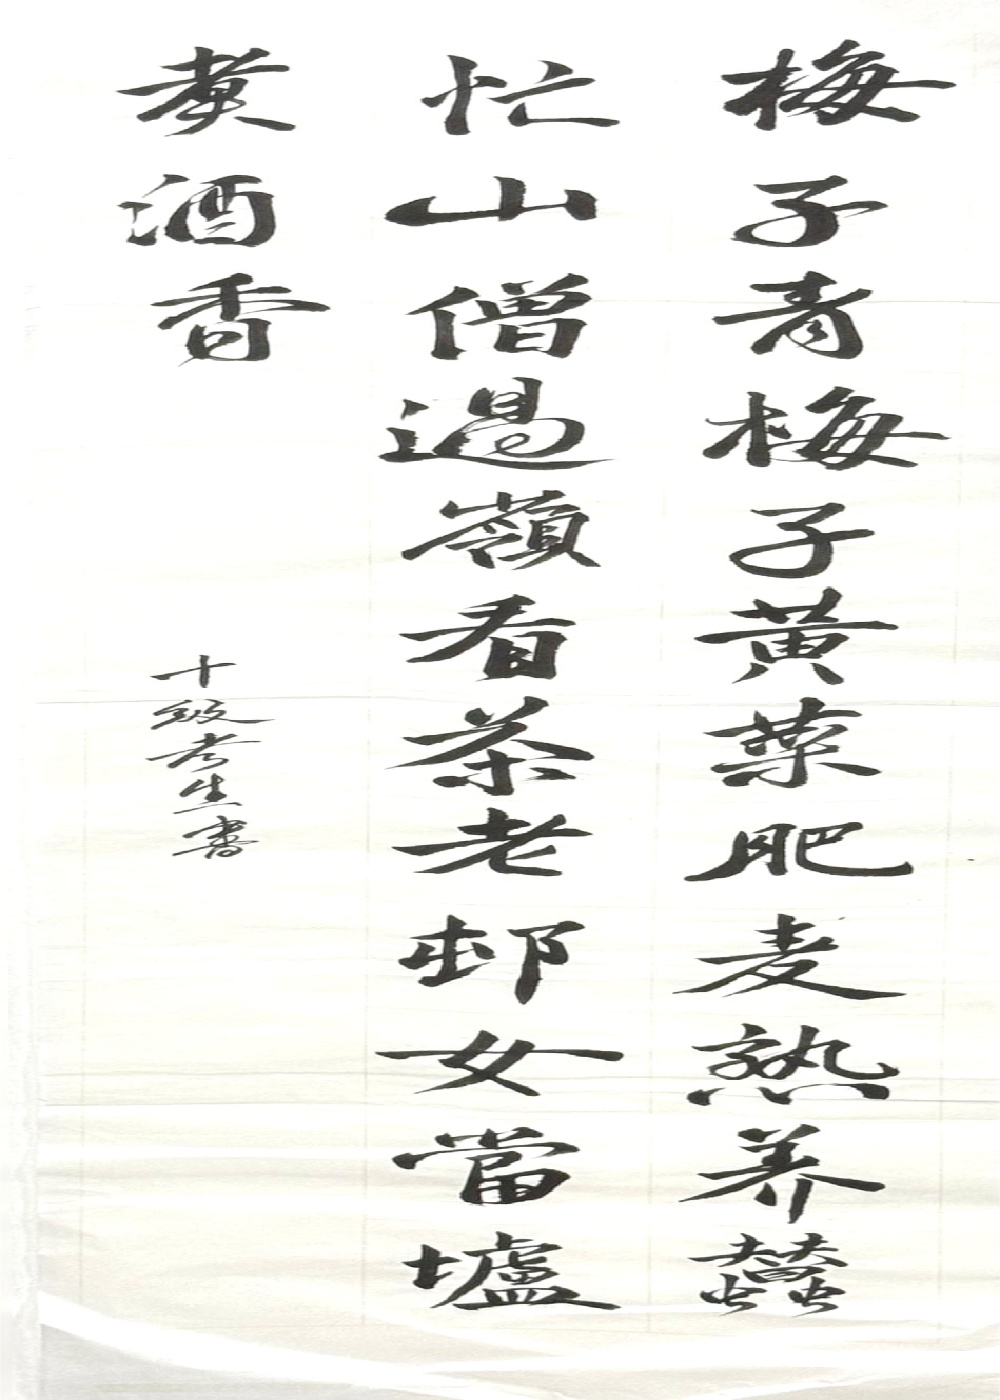 梅子青梅子黃菜肥麦熟养蠶
忙山僧過嶺看茶老邨女當壚
煑酒香
十級考生書